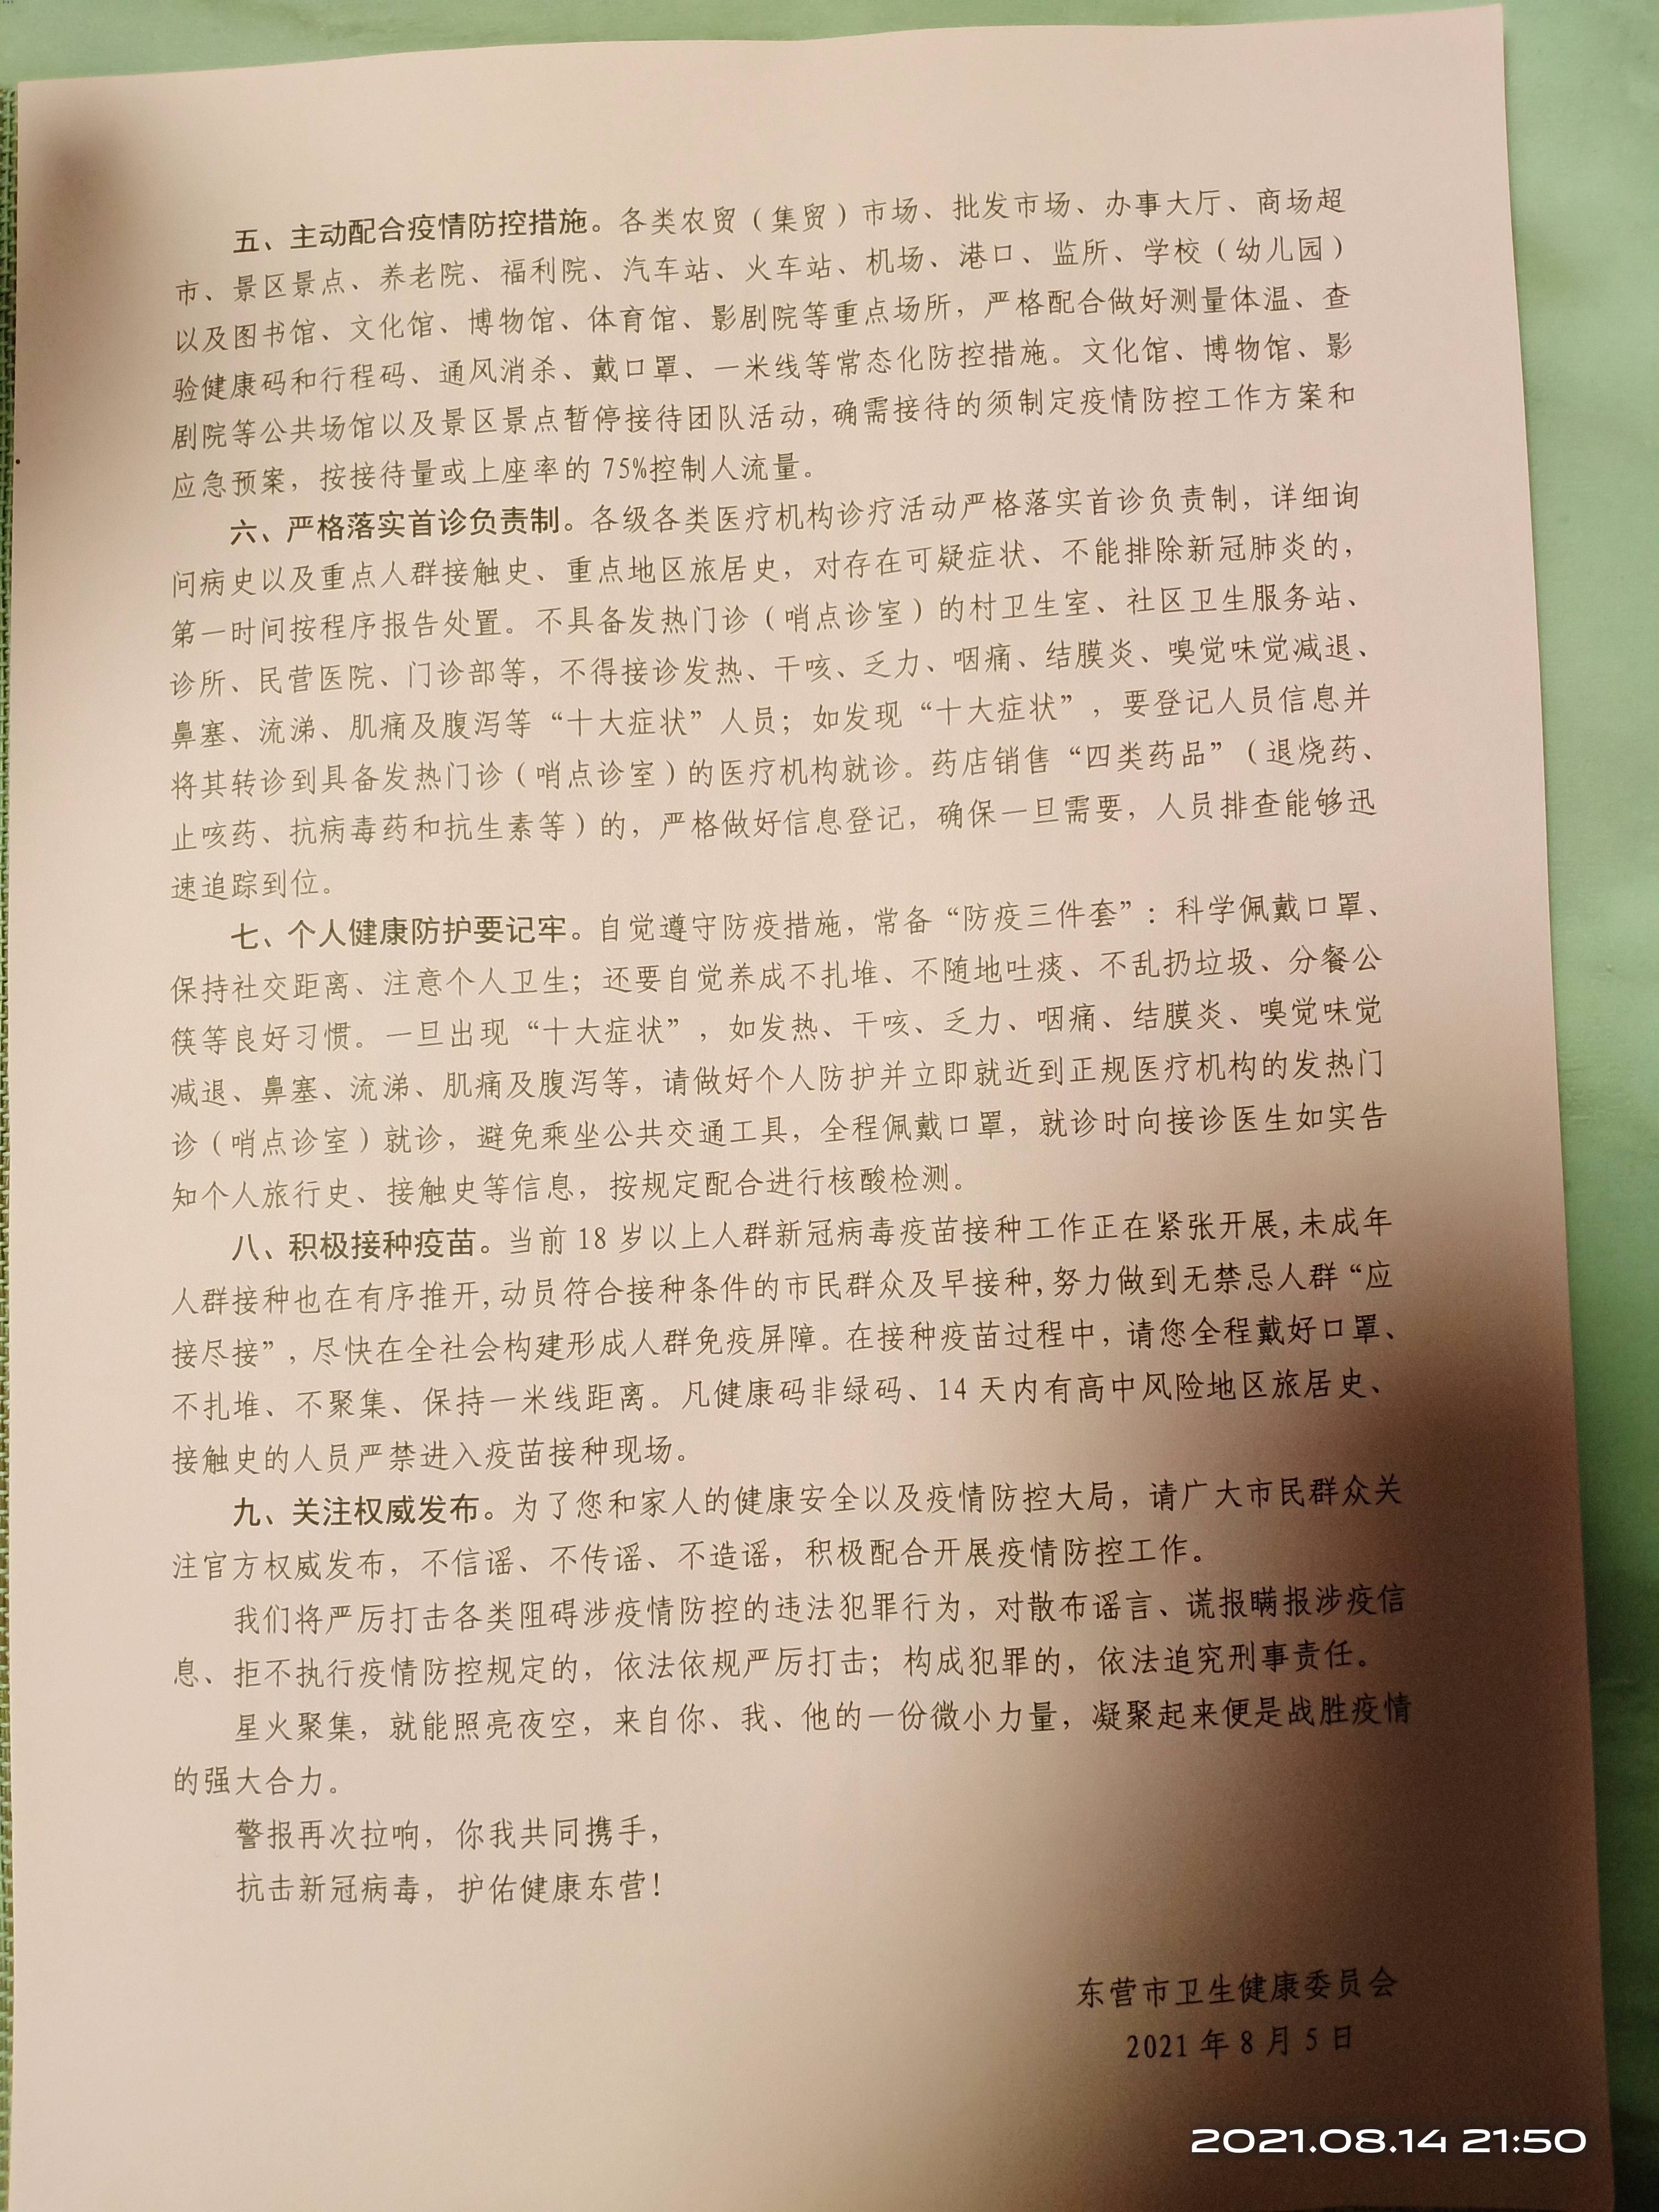 五、主动配合疫情防控措施。各类农贸（集贸）市场、批发市场、办事大厅、商场超
市、景区景点、养老院、福利院、汽车站、火车站、机场、港口、监所、学校（幼儿园）
以及图书馆、文化馆、博物馆、体育馆、影剧院等重点场所，严格配合做好测量体温、查
验健康码和行程码、通风消杀、戴口罩、一米线等常态化防控措施。文化馆、博物馆、影
剧院等公共场馆以及景区景点暂停接待团队活动，确需接待的须制定疫情防控工作方案和
应急预案，按接待量或上座率的 75%控制人流量。
六、严格落实首诊负责制。各级各类医疗机构诊疗活动严格落实首诊负责制，详细询
问病史以及重点人群接触史、重点地区旅居史，对存在可疑症状、不能排除新冠肺炎的，
第一时间按程序报告处置。不具备发热门诊（哨点诊室）的村卫生室、社区卫生服务站、
诊所、民营医院、门诊部等，不得接诊发热、干咳、乏力、咽痛、结膜炎、嗅觉味觉减退、
鼻塞、流涕、肌痛及腹泻等“十大症状”人员；如发现“十大症状”，要登记人员信息并
将其转诊到具备发热门诊（哨点诊室）的医疗机构就诊。药店销售“四类药品”（退烧药、
止咳药、抗病毒药和抗生素等）的，严格做好信息登记，确保一旦需要，人员排查能够迅
速追踪到位。
七、个人健康防护要记牢。自觉遵守防疫措施，常备“防疫三件套”：科学佩戴口罩、
保持社交距离、注意个人卫生；还要自觉养成不扎堆、不随地吐痰、不乱扔垃圾、分餐公
筷等良好习惯。一旦出现“十大症状”，如发热、干咳、乏力、咽痛、结膜炎、嗅觉味觉
减退、鼻塞、流涕、肌痛及腹泻等，请做好个人防护并立即就近到正规医疗机构的发热门
诊（哨点诊室）就诊，避免乘坐公共交通工具，全程佩戴口罩，就诊时向接诊医生如实告
知个人旅行史、接触史等信息，按规定配合进行核酸检测。
八、积极接种疫苗。当前 18 岁以上人群新冠病毒疫苗接种工作正在紧张开展，未成年
人群接种也在有序推开，动员符合接种条件的市民群众及早接种，努力做到无禁忌人群“应
接尽接”，尽快在全社会构建形成人群免疫屏障。在接种疫苗过程中，请您全程戴好口罩、
不扎堆、不聚集、保持一米线距离。凡健康码非绿码、14 天内有高中风险地区旅居史、
接触史的人员严禁进入疫苗接种现场。
九、关注权威发布。为了您和家人的健康安全以及疫情防控大局，请广大市民群众关
注官方权威发布，不信谣、不传谣、不造谣，积极配合开展疫情防控工作。
我们将严厉打击各类阻碍涉疫情防控的违法犯罪行为，对散布谣言、谎报瞒报涉疫信
息、拒不执行疫情防控规定的，依法依规严厉打击；构成犯罪的，依法追究刑事责任。
星火聚集，就能照亮夜空，来自你、我、他的一份微小力量，凝聚起来便是战胜疫情
的强大合力。
警报再次拉响，你我共同携手，
抗击新冠病毒，护佑健康东营！
东营市卫生健康委员会
2021 年 8 月 5 日
2021.08.14 21:50